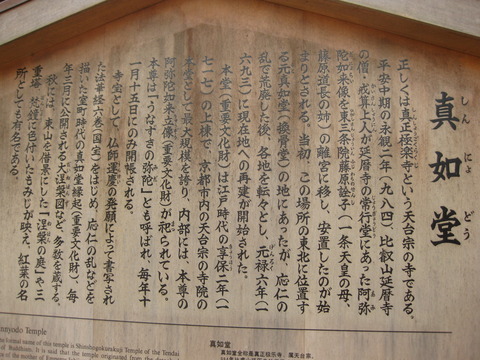 真如堂
しん にょ どう
正しくは真正極楽寺という天台宗の寺である。
平安中期の永観二年(九八四)、比叡山延暦寺
の僧・戒算上人が延暦寺の常行堂にあった阿弥
陀如来像を東三条院藤原詮子(一条天皇の母、
藤原道長の姉)の離宮に移し、安置したのが始
まりとされる。当初、この場所の東北に位置す
る元真如堂(換骨堂)の地にあったが、応仁の
乱で荒廃した後、各地を転々とし、元禄六年(一
六九三)に現在地への再建が開始された。
本堂(重要文化財)は江戸時代の享保二年(一
七一七)の上棟で、京都市内の天台宗の寺院の
本堂として最大規模を誇り、内部には、本尊の
阿弥陀如来立像(重要文化財)が祀られている。
本尊は「うなずきの弥陀」とも呼ばれ、毎年十
一月十五日にのみ開帳される。
寺宝として、仏師運慶の発願によって書写され
た法華経六巻(国宝)をはじめ、応仁の乱などを
描いた室町時代の真如堂縁起(重要文化財)、毎
年三月に公開される大涅槃図など、多数を蔵する。
秋には、東山を借景にした「涅槃の庭」や三
重塔、梵鐘に色付いたもみじが映え、紅葉の名
所としても有名である。
nnyodo Temple
The formal name of this temple is Shinshogokurakuji Temple of the Tendai
真如堂
真如堂全称是真正极乐寺,属天台宗。